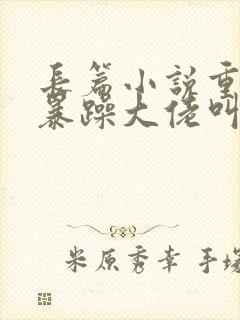 長篇小說重
暴躁大佬叫
米原秀幸 手塚